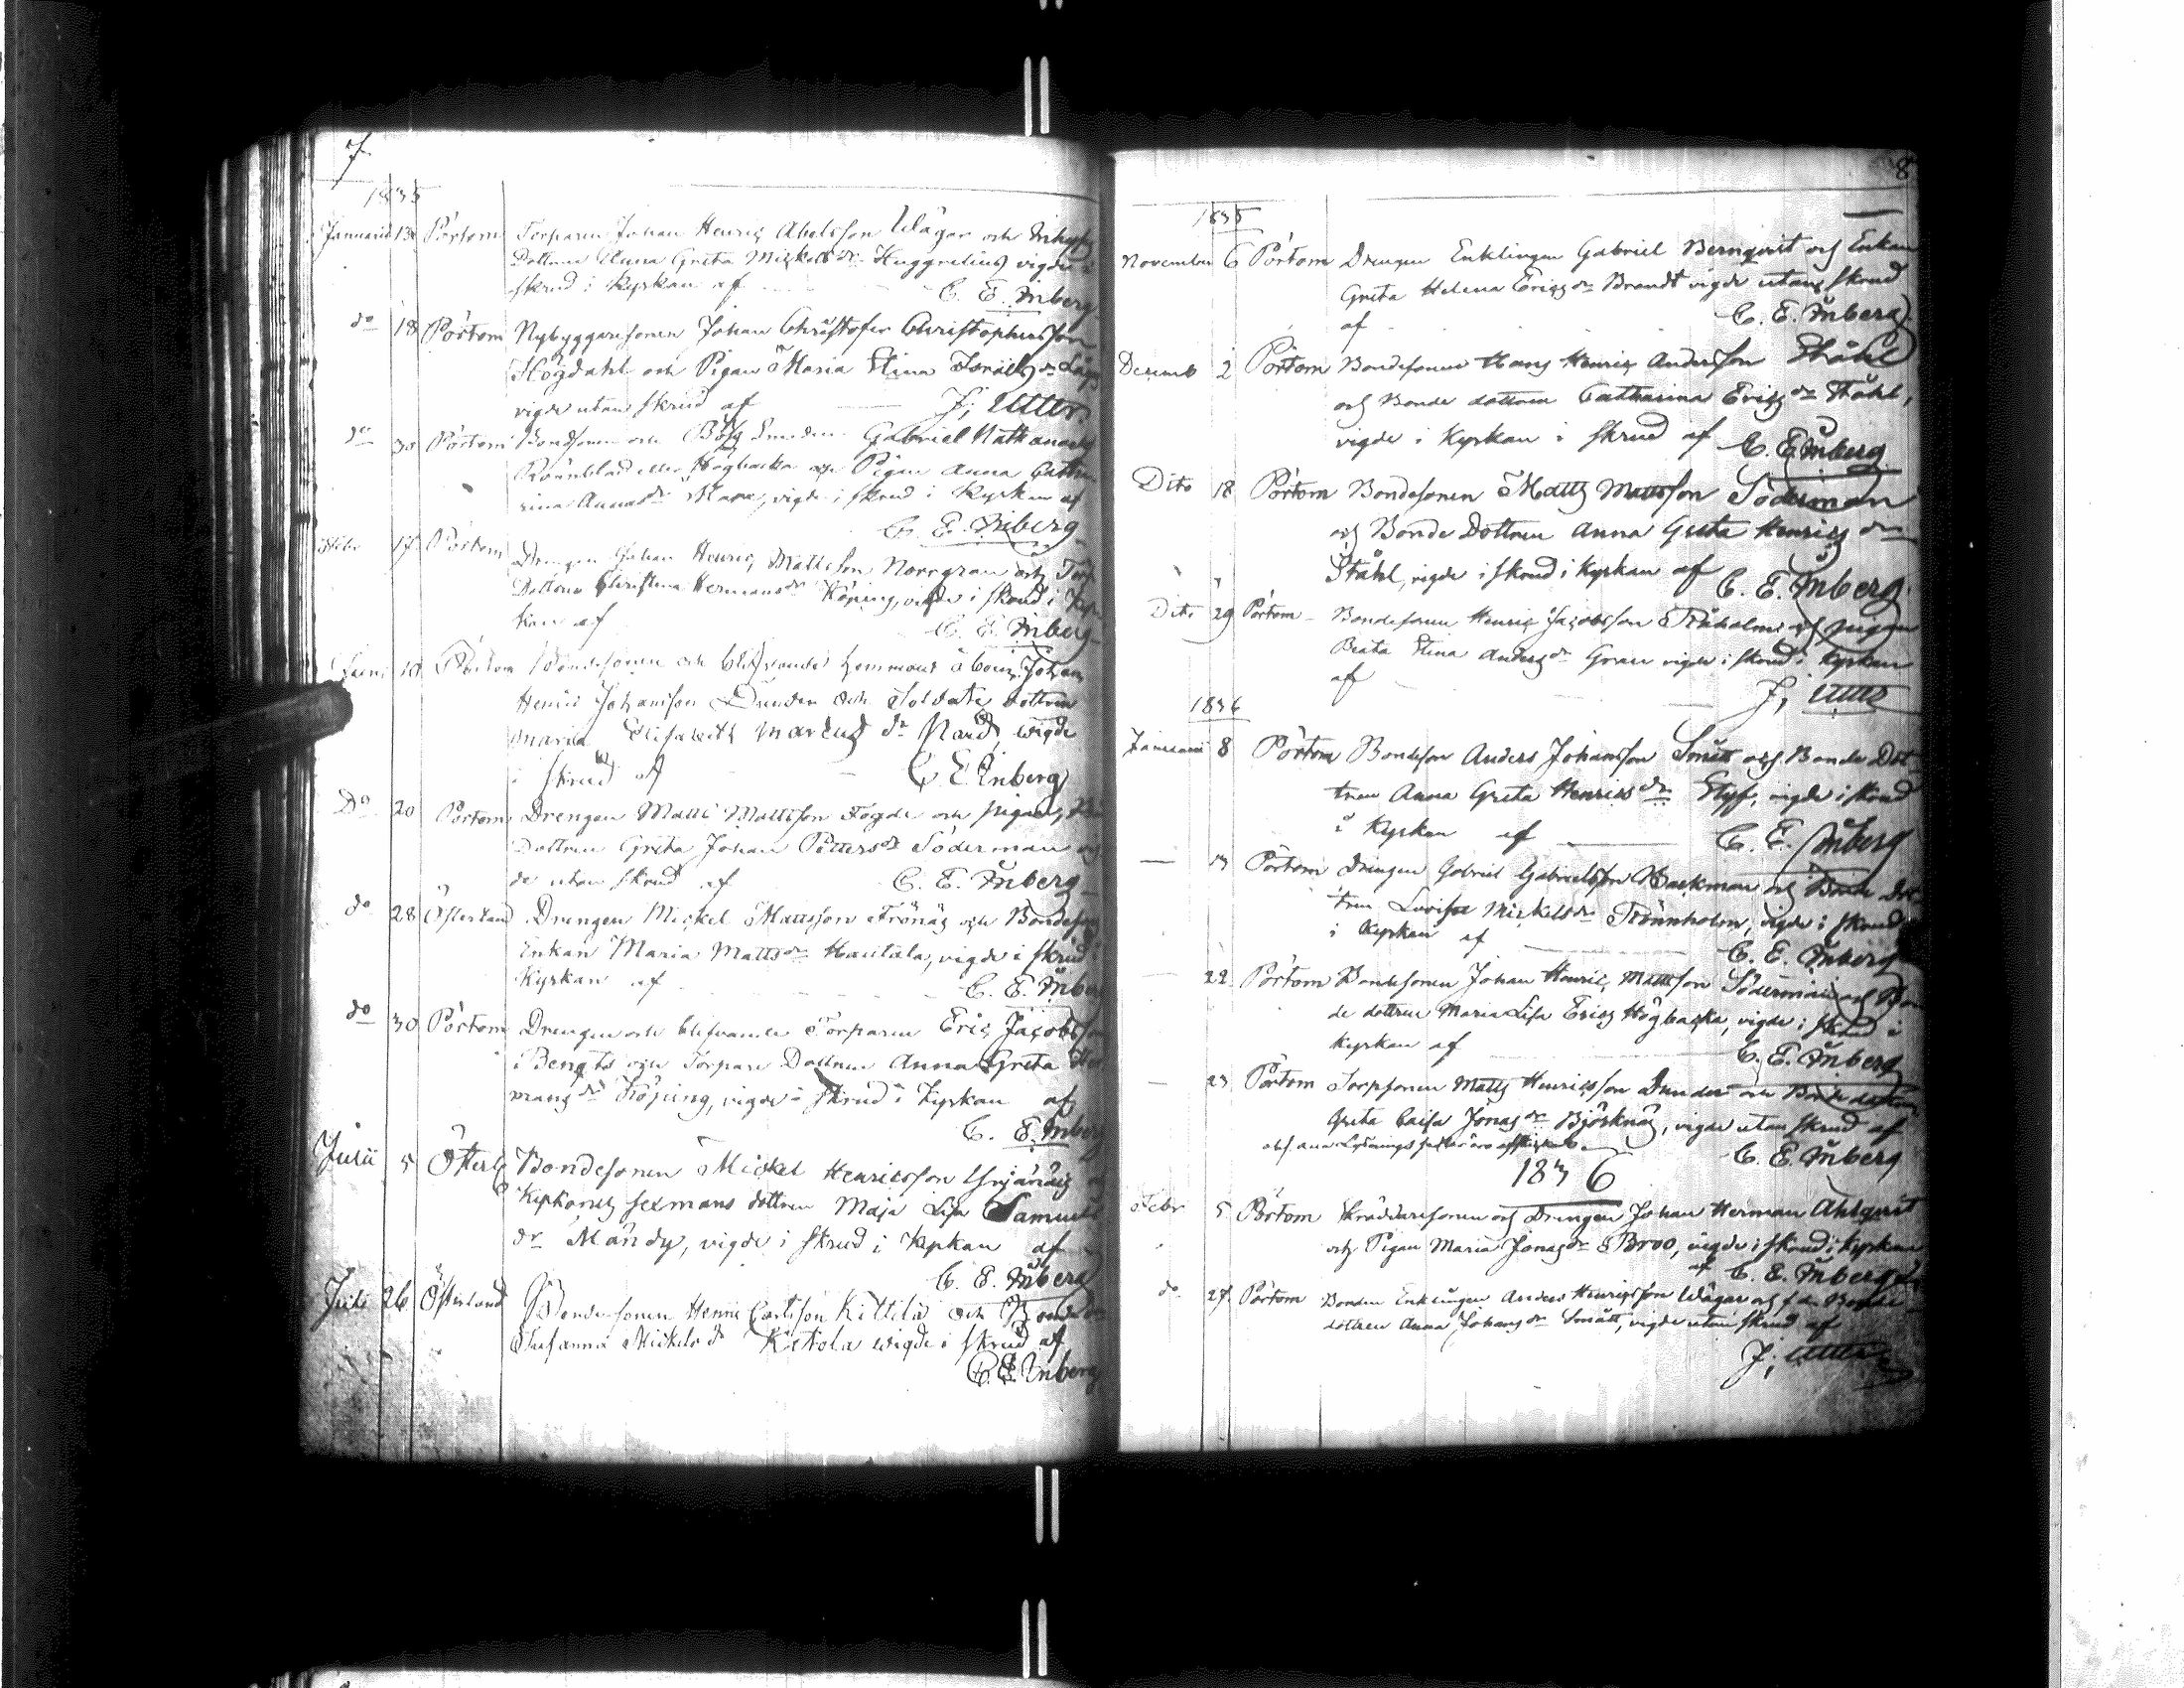 7
1835
Januarii 13 Pörtom Torparen Johan Henric Abelsson Wägar och
Dottren Anna Greta Mickels dr Huggnelius vigde i
skrud i Kyrkan af C. E. Inberg
do 18 Pörtom Nybyggaresonen Johan Christofer Christophersson
Högdahl och Pigan Maria Stina Israels dr
vigde utan skrud af J; Utter
do 30 Pörtom Bondsonen och Gabriel
Rönnblad eller Högbacka och Pigan Anna Catha
rina vigde i skrud i Kyrkan af
C. E. Inberg
17 Pörtom Drengen Johan Henric Mattsson Norrgran och Torp
Dottren Christina Hermans dr Köping, vigde i skrud i Kyr
kan af C. E. Inberg
Juni 10 Pörtom Bondesonen och blifvande hemmans åboen Johan
Henric Johansson Dunder och Soldats dottren
Maria Elisabeth Marcus dr Nard wigde
i skrud af C. E. Inberg
Do 20 Pörtom Drengen Matts Mattsson Fogde och pigan,
Dottren Greta Johan Petters dr Söderman
de utan skrud af C. E. Inberg
do 28 Österland Drengen Mickel Mattsson Frönäs och Bondesons
Enkan Maria Matts dr Hautala, vigde i skrud
Kyrkan af C. E. Inberg
do 30 Pörtom Drengen och blifvande Torparen Eric Jacobsson
Bengts och Torpare Dottren Anna Greta Her
mans dr Köping, vigde i skrud i Kyrkan af
C. E. Inberg
Julii 5 Österl Bondesonen Mickel Henricsson
Kyrkones sexmans dottren Maja Lisa Samuels
dr Mandy, vigde i skrud i Kyrkan af
C. E. Inberg
Julii 26 Österland Bondesonen Henric Carlsson Kittilä och Bonde
Susanna Mickels d Ketola wigde i skrud af
C. E. Inberg
8
1835
November 6 Pörtom Drengen Enklingen Gabriel Bernqvist och Enkan
Greta Helena Erics dr Brandt vigde utan skrud
af C. E. Inberg
Decemb 2 Pörtom Bondesonen Hans Henric Andersson Ståhl
och Bonde dottren Catharina Erics dr Ståhl,
vigde i Kyrkan i skrud af C. E. Inberg
Dito 18 Pörtom Bondesonen Matts Mattsson Söderman
och Bonde Dottren Anna Greta Henrics dr
Ståhl, vigde i skrud i Kyrkan af C. E. Inberg
Dito 29 Pörtom Bondesonen Henric Jacobsson och pigan
Beata Stina Anders dr Gran vigde i skrud i Kyrkan
af J; Utter
1836
Januari 8 Pörtom Bondeson Anders Johansson Smått och Bonde Dot
tren Anna Greta Henrics dr Styf, vigde i skrud
i Kyrkan af C. E. Inberg
Pörtom Drengen Gabriel Gabrielsson Backman och Bonde Dot
tren Lovisa Mickels dr Rönnholm, vigde i skrud
i Kyrkan af C. E. Inberg
22 Pörtom Bondesonen Johan Henric Mattsson Söderman och Bon
de dottren Maria Lisa Erics Högbacka, vigde i skrud i
Kyrkan af C. E. Inberg
23 Pörtom Torpsonen Matts Henricsson Dunder och Bonde dottren
Greta Caisa Jonas dr Björknäs, vigde utan skrud af
C. E. Inberg
1836
Febr 5 Pörtom Skräddaresonen och Drengen Johan Herman Ahlqvist
och Pigan Maria Jonas dr Broo, vigde i skrud i Kyrkan
af C. E. Inberg
do 27 Pörtom Bonden Enklingen Anders Henricsson Wägar och f.d. Bonde
dottren Anna Johans dr Smått, vigde utan skrud af
J; Utter